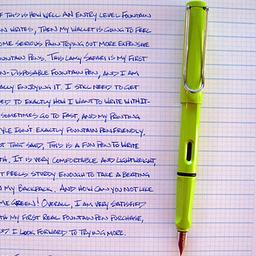 F THIS IS HOW WELL AN ENTRY LEVEL FOUNTAIN
N WRITES, THEN MY WALLET IS GOING TO FEEL
OME SERIOUS PAIN TRYING OUT MORE EXPENSIVE
OUNTAIN PENS. THIS LAMY SAFARI IS MY FIRST
N-DISPOSABLE FOUNTAIN PEN, AND I AM
ALLY ENJOYING IT. I STILL NEED TO GET
ED TO EXACTLY HOW I WANT TO WRITE WITH IT-
SOMETIMES GO TO FAST, AND MY PRINTING
YLE ISN'T EXACTLY FOUNTAIN PEN FRIENDLY.
UT THAT SAID, THIS IS A FUN PEN TO WRITE
TH. IT IS VERY COMFORTABLE AND LIGHTWEIGHT,
T FEELS STURDY ENOUGH TO TAKE A BEATING
N MY BACKPACK. AND HOW CAN YOU NOT LIKE
ME GREEN! OVERALL, I AM VERY SATISFIED
TH MY FIRST REAL FOUNTAIN PEN PURCHASE,
ND I LOOK FORWARD TO TRYING MORE.